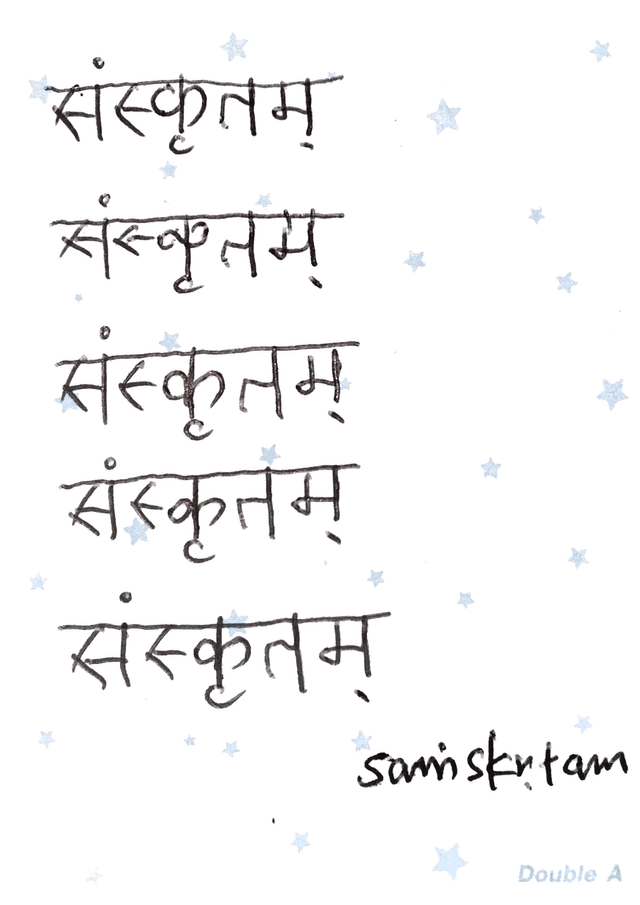 संस्कृतम्
संस्कृतम्
संस्कृतम्
संस्कृतम्
संस्कृतम्
saṁskṛtam
Double A